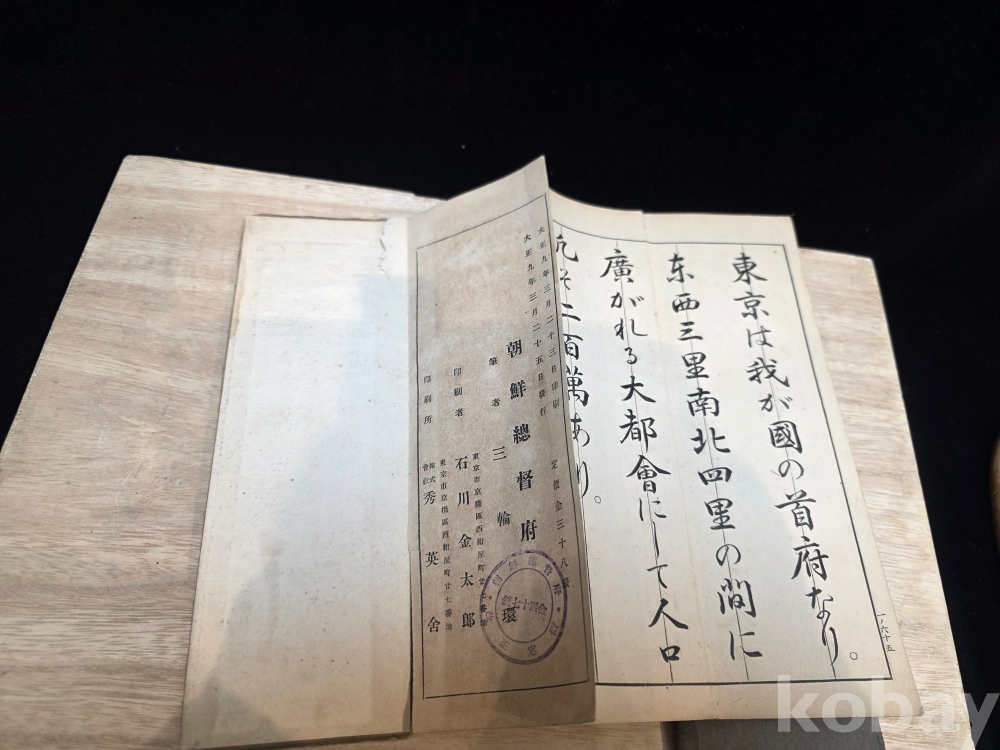 東京は我が國の首府なり。
东西三里南北四里の間に
廣がれる大都會にして人口
凡そ二百萬あり。
一ノ六十五
大正九年三月二十三日印刷
大正九年三月二十五日發行
定價金三十八錢
朝鮮總督府
筆者 三輪 環
東京市京橋區西紺屋町廿七番地
印刷者 石川金太郎
東京市京橋區西紺屋町廿七番地
印刷所 株式會社 秀英舍
kobay